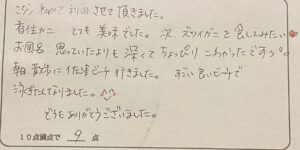 こちら初めて利用させて頂きました。
香住カニ とても美味でした。次、ズワイガニを食してみたい
お風呂 思っていたよりも深くてちょっぴりこわかったですう。
朝、散歩に佐津ビーチ行きました。すごい良いビーチで
泳ぎたくなりました。^^
どうもありがとうございました。
10点満点で 9 点